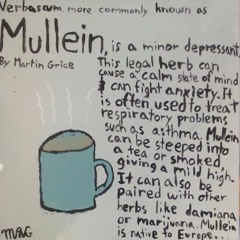 Verbascum, more commonly known as
Mullein, is a minor depressant.
By Martin Grice
This legal herb can
cause a calm state of mind
& can fight anxiety. It
is often used to treat
respiratory problems
such as asthma. Mullein
can be steeped into
a tea or smoked,
giving a mild high.
It can also be
paired with other
herbs like damiana
or marijuana. Mullein
is native to Europe...
MAG